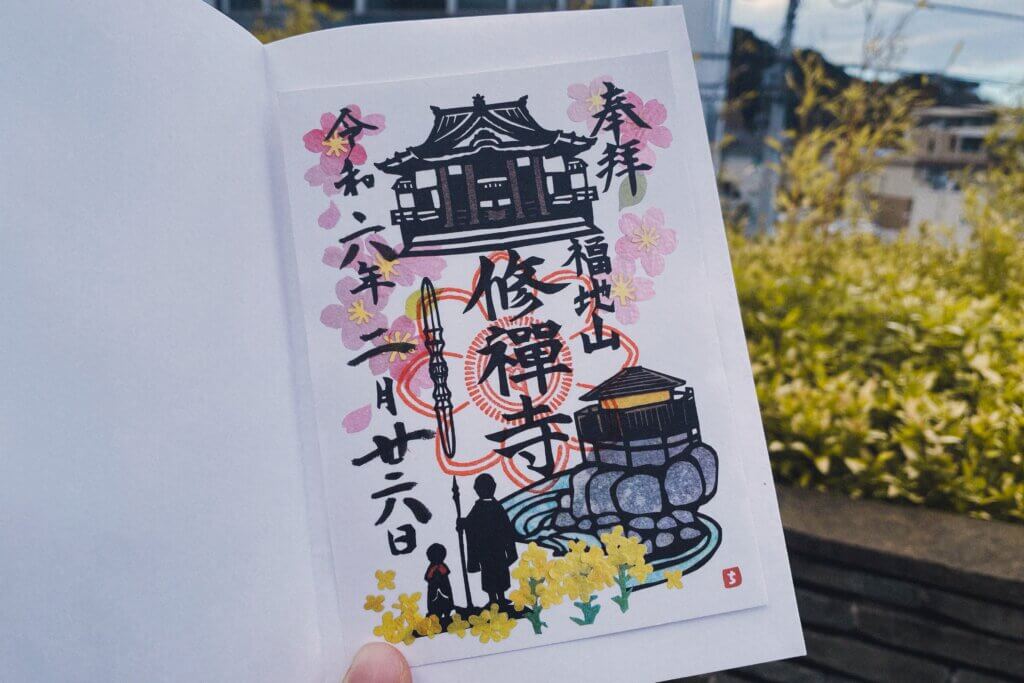 奉拝
福地山
修禪寺
令和六年二月廿六日
ち